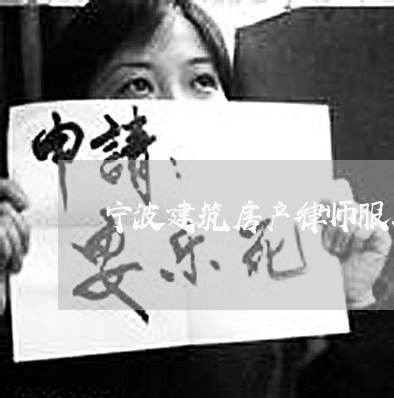 申請：
宁波建筑房产律师服
安乐死